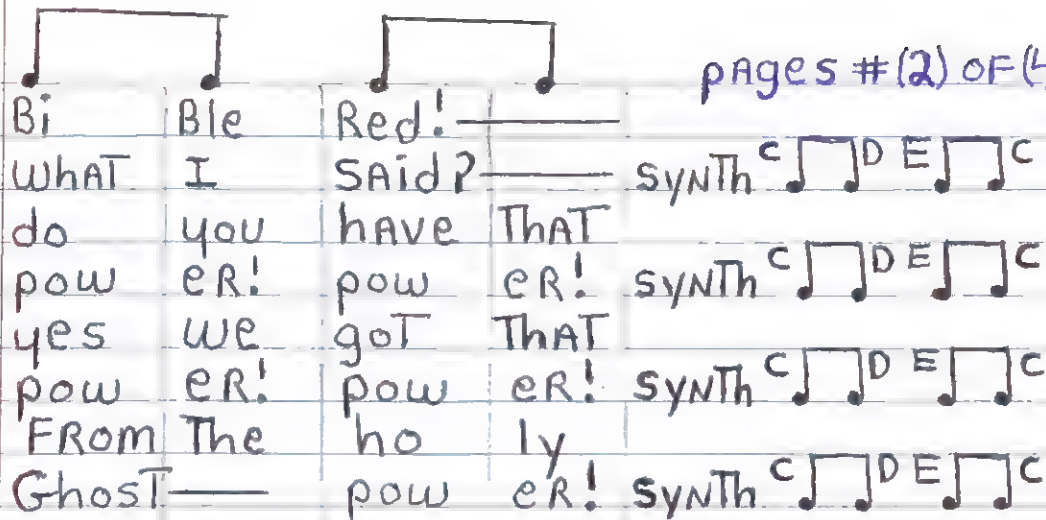 pAges #(2) OF (4
Bi Ble Red! ——
WhAT I SAid? —— SYNTh C D E C
do you hAve ThAT
pow eR! pow eR! SYNTh C D E C
yes we goT ThAT
pow eR! pow eR! SYNTh C D E C
FROM The ho ly
GhosT —— pow eR! SYNTh C D E C